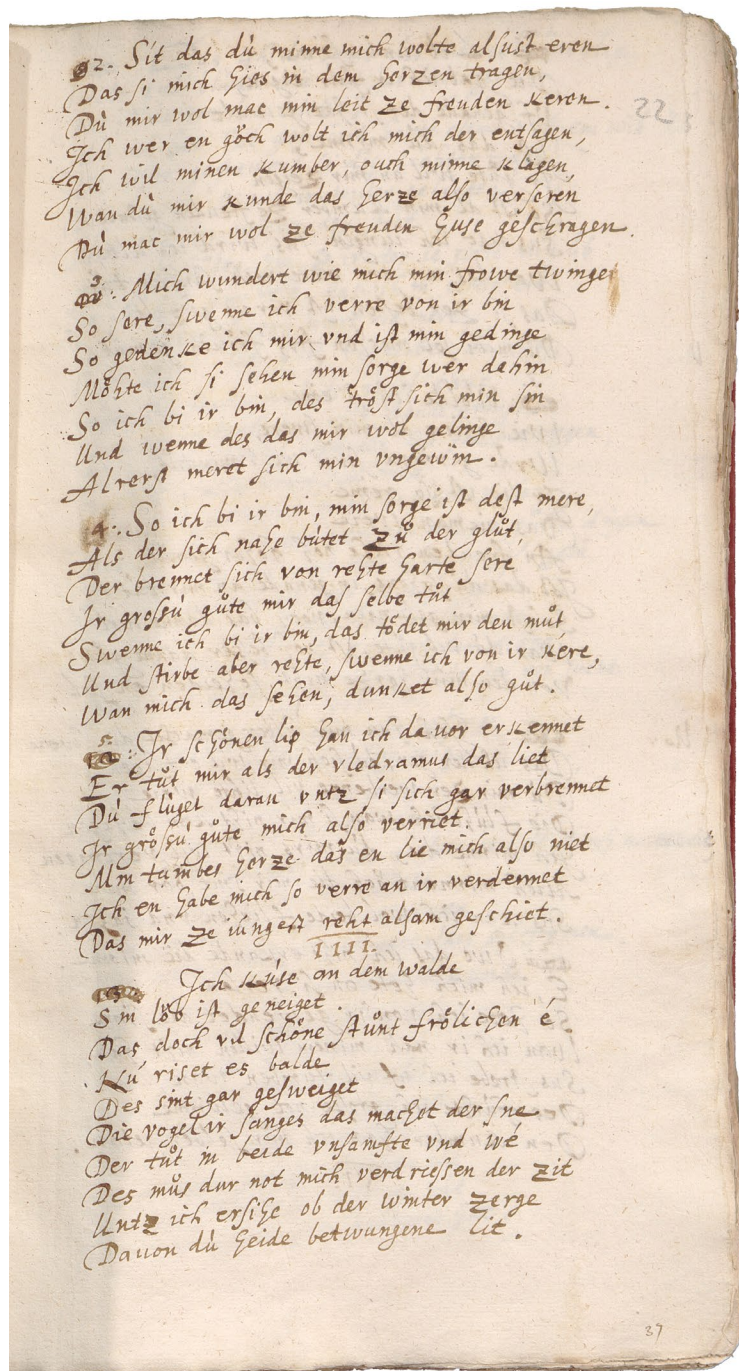 2. Sit das dù minne mich wolte alsust eren
Das si mich hies in dem herzen tragen,
Dù mir wol mac min leit ze freuden keren.
22
Ich wer en gŏch wolt ich mich der entsagen,
Ich wil minen kumber, ouch minne klagen,
Wan dù mir kunde das herze also verseren
Dù mac mir wol ze freuden huse geschragen.
3. Mich wundert wie mich min frowe twinge
So sere, swenne ich verre von ir bin
So gedenke ich mir vnd ist min gedinge
Mŏhte ich si sehen min sorge wer dahin
So ich bi ir bin, des trŏst sich min sin
Und wenne des das mir wol gelinge
Alrerst meret sich min vngewin.
4. So ich bi ir bin, min sorge ist dest mere,
Als der sich nahe bùtet zů der glůt,
Der brennet sich von rehte harte sere
Ir grossù gůte mir das selbe tůt
Swenne ich bi ir bin, das tŏdet mir den můt
Und stirbe aber rehte, swenne ich von ir kere,
Wan mich das sehen, dunket also gůt.
5. Ir schŏnen lip han ich da vor erkennet
Er tůt mir als der vledramus das liet
Dù flùget daran vntz si sich gar verbrennet
Ir grŏssù gůte mich also verriet.
Min tumbes herze das en lie mich also niet
Ich en habe mich so verre an ir verdennet
Das mir ze iùngest reht alsam geschiet.
IIII.
Ich kùse an dem walde
Sin lŏb ist geneiget.
Das doch vil schŏne stůnt frŏlichen é
Nù riset es balde
Des sint gar gesweiget
Die vogel ir sanges das machet der sne
Der tůt in beide vnsamfte vnd wé
Des můs dur not mich verdriessen der zit
Untz ich ersihe ob der winter zerge
Dauon dù heide betwungene lit.
37